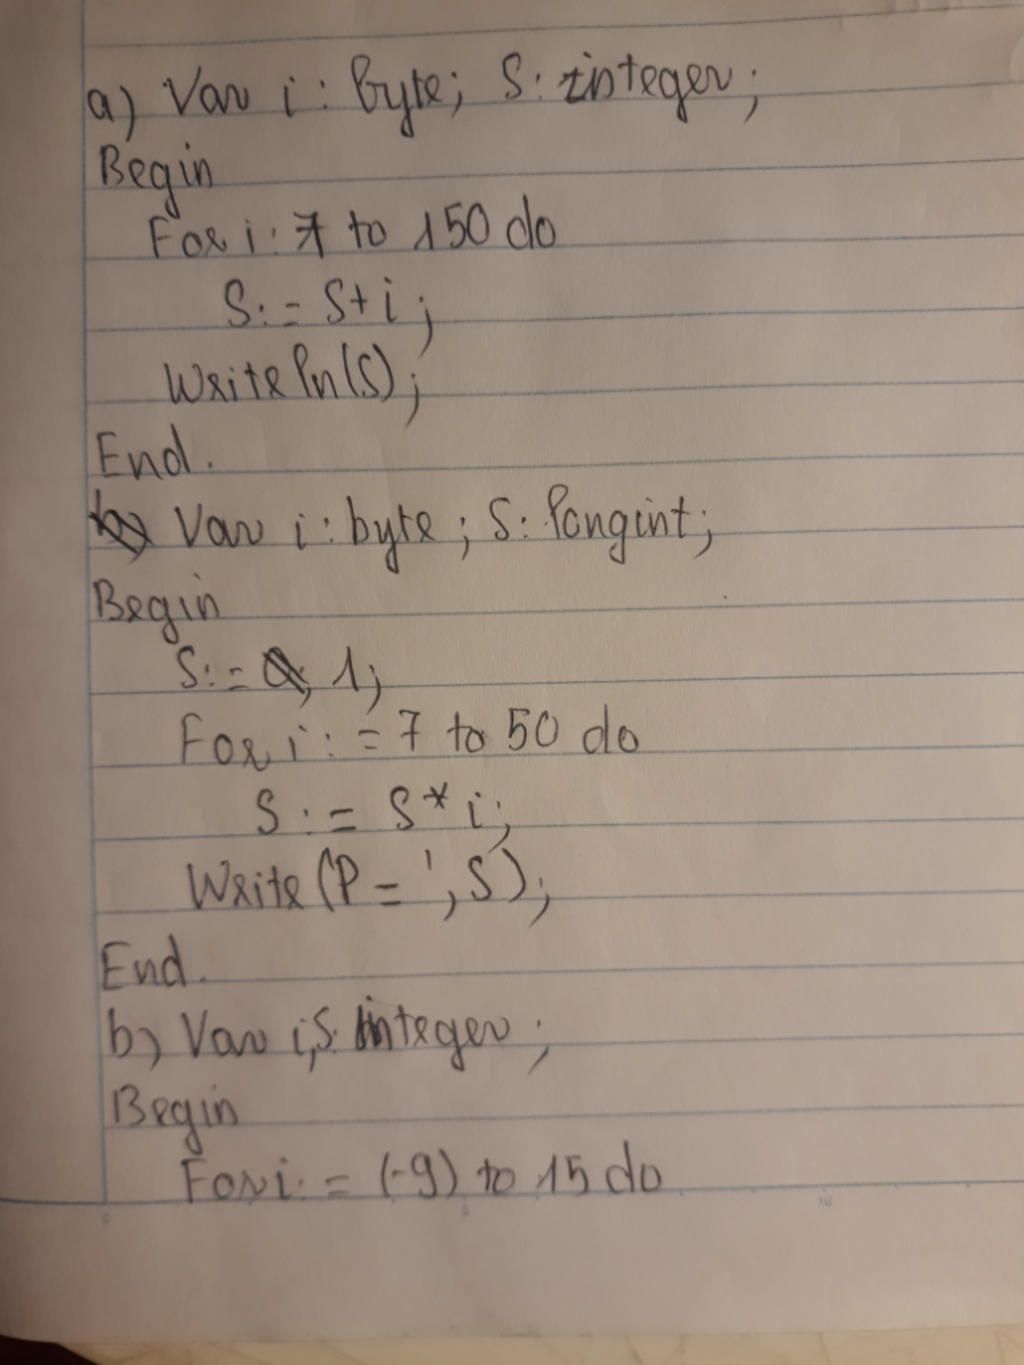 a) Var i : byte; S: integer;
Begin
For i: 7 to 150 do
S:= S+i;
Writeln(S);
End.
b) Var i: byte; S: longint;
Begin
S:= 1;
For i:=7 to 50 do
S:= S*i;
Write(P=', S);
End.
b) Var i,S: integer;
Begin
For i:= (-9) to 15 do